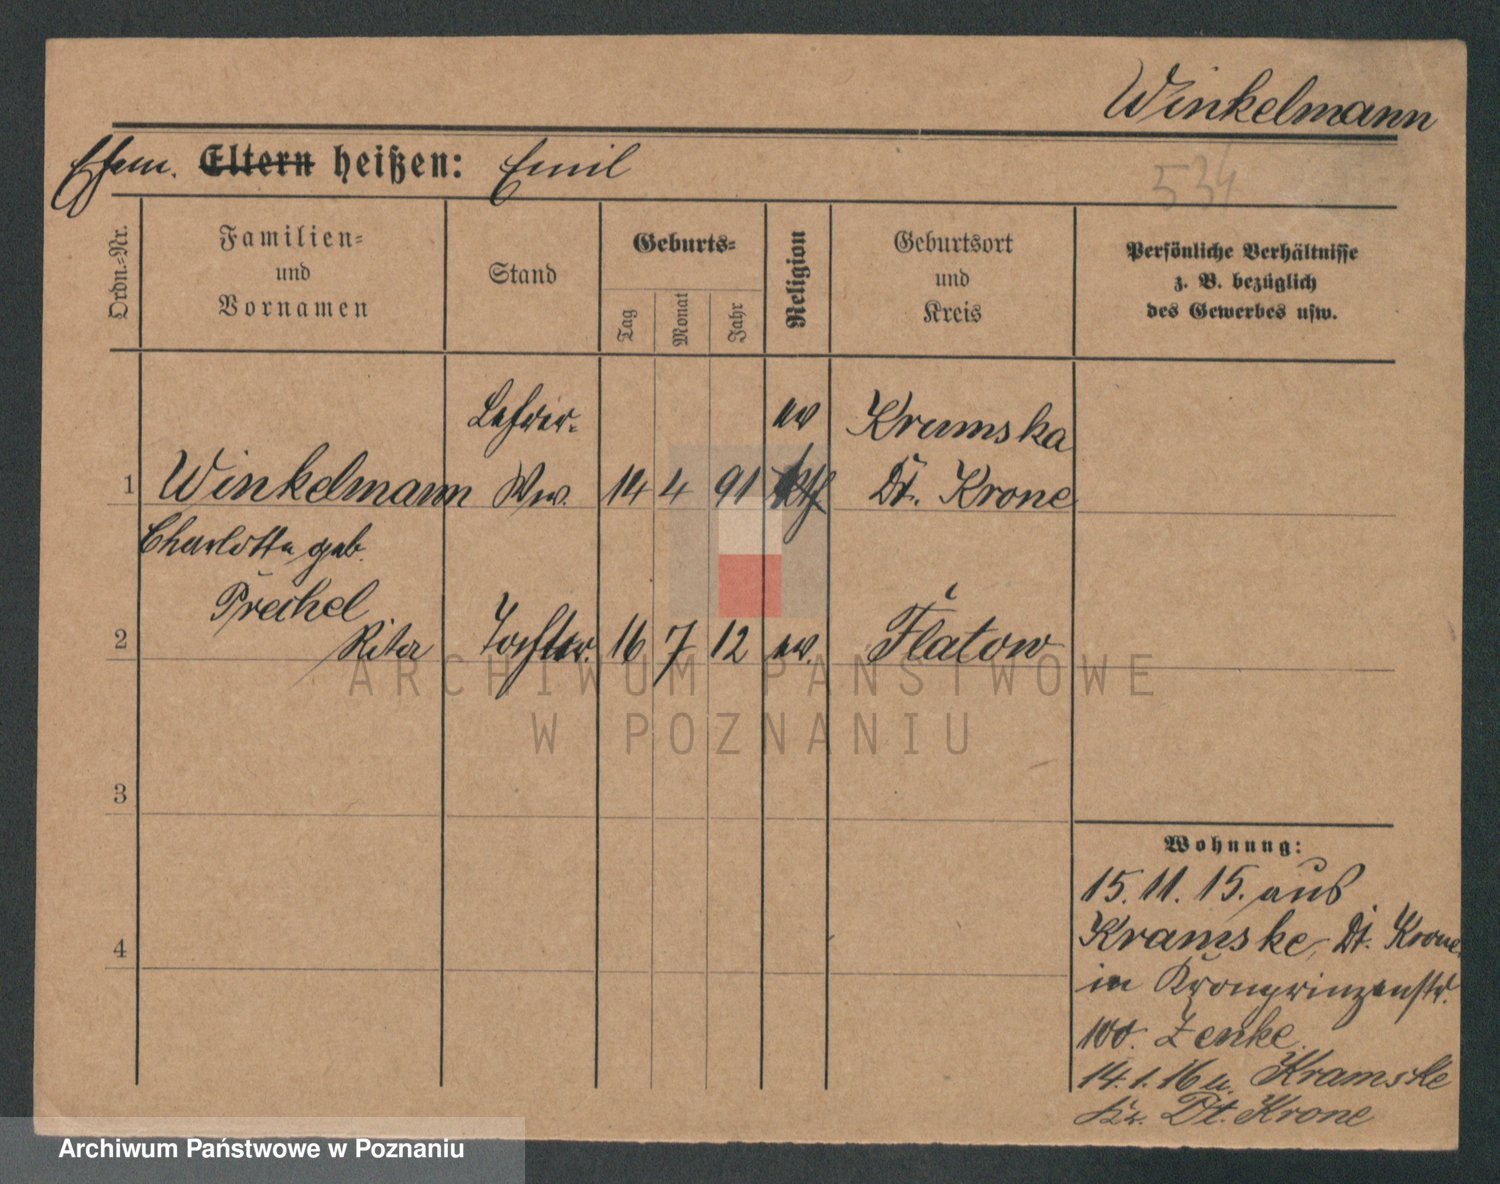 Winkelmann
Ehem. Eltern heißen: Emil
534
Ordn.-Nr.
Familien-
und
Vornamen
Stand
Geburts-
Tag
Monat
Jahr
Religion
Geburtsort
und
Kreis
Persönliche Verhältnisse
z. B. bezüglich
des Gewerbes usw.
Lehrer- ev Kramska
1 Winkelmann Ww. 14 4 91 kth Dt. Krone
Charlotte geb.
Prechel
2 Rita Tochter. 16 7 12 ev. Flatow
3
4
Wohnung:
15. 11. 15. aus
Kramske, Dt. Krone
in Kronprinzenstr.
100. Zenke.
14. 1. 16 n. Kramske
Kr. Dt. Krone
ARCHIWUM PAŃSTWOWE
W POZNANIU
Archiwum Państwowe w Poznaniu